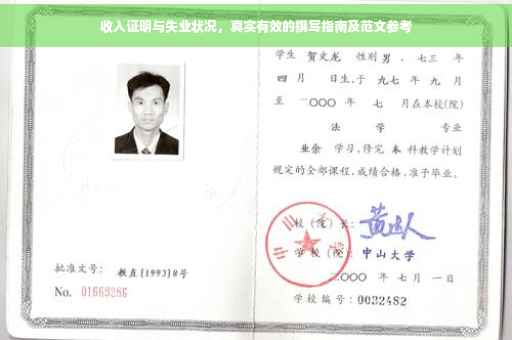 收入证明与失业状况，真实有效的撰写指南及范文参考
学生 贺文龙 性别 男 、七三 年
四 月 日生，于 九七 年 九 月
至 二〇〇〇 年 七 月在本校(院)
法 学 专业
业余 学习，修完 本 科教学计划
规定的全部课程，成绩合格，准予毕业。
校（院）长：
学校（院）：中山大学
二〇〇〇 年 七 月 一 日
学校编号：0032482
批准文号：教直[1993]8号
No. 01669286